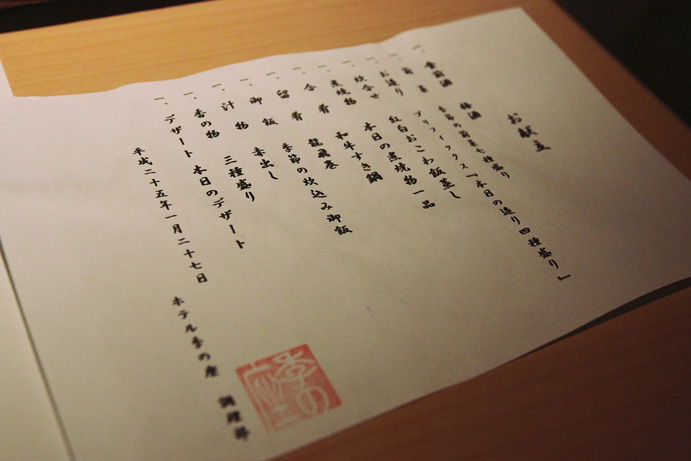 お献立
一、食前酒 梅酒
一、前菜 季節の前菜七種盛り
一、お造り プリフィックス『本日の造り四種盛り』
一、炊合せ 紅白おこわ飯蒸し
一、煮焼物 本日の煮焼物一品
一、合肴 和牛すき鍋
一、留肴 龍飛巻
一、御飯 季節の炊込み御飯
一、汁物 赤出し
一、香の物 三種盛り
一、デザート 本日のデザート
平成二十五年一月二十七日
ホテル季の座 調理部
季の座